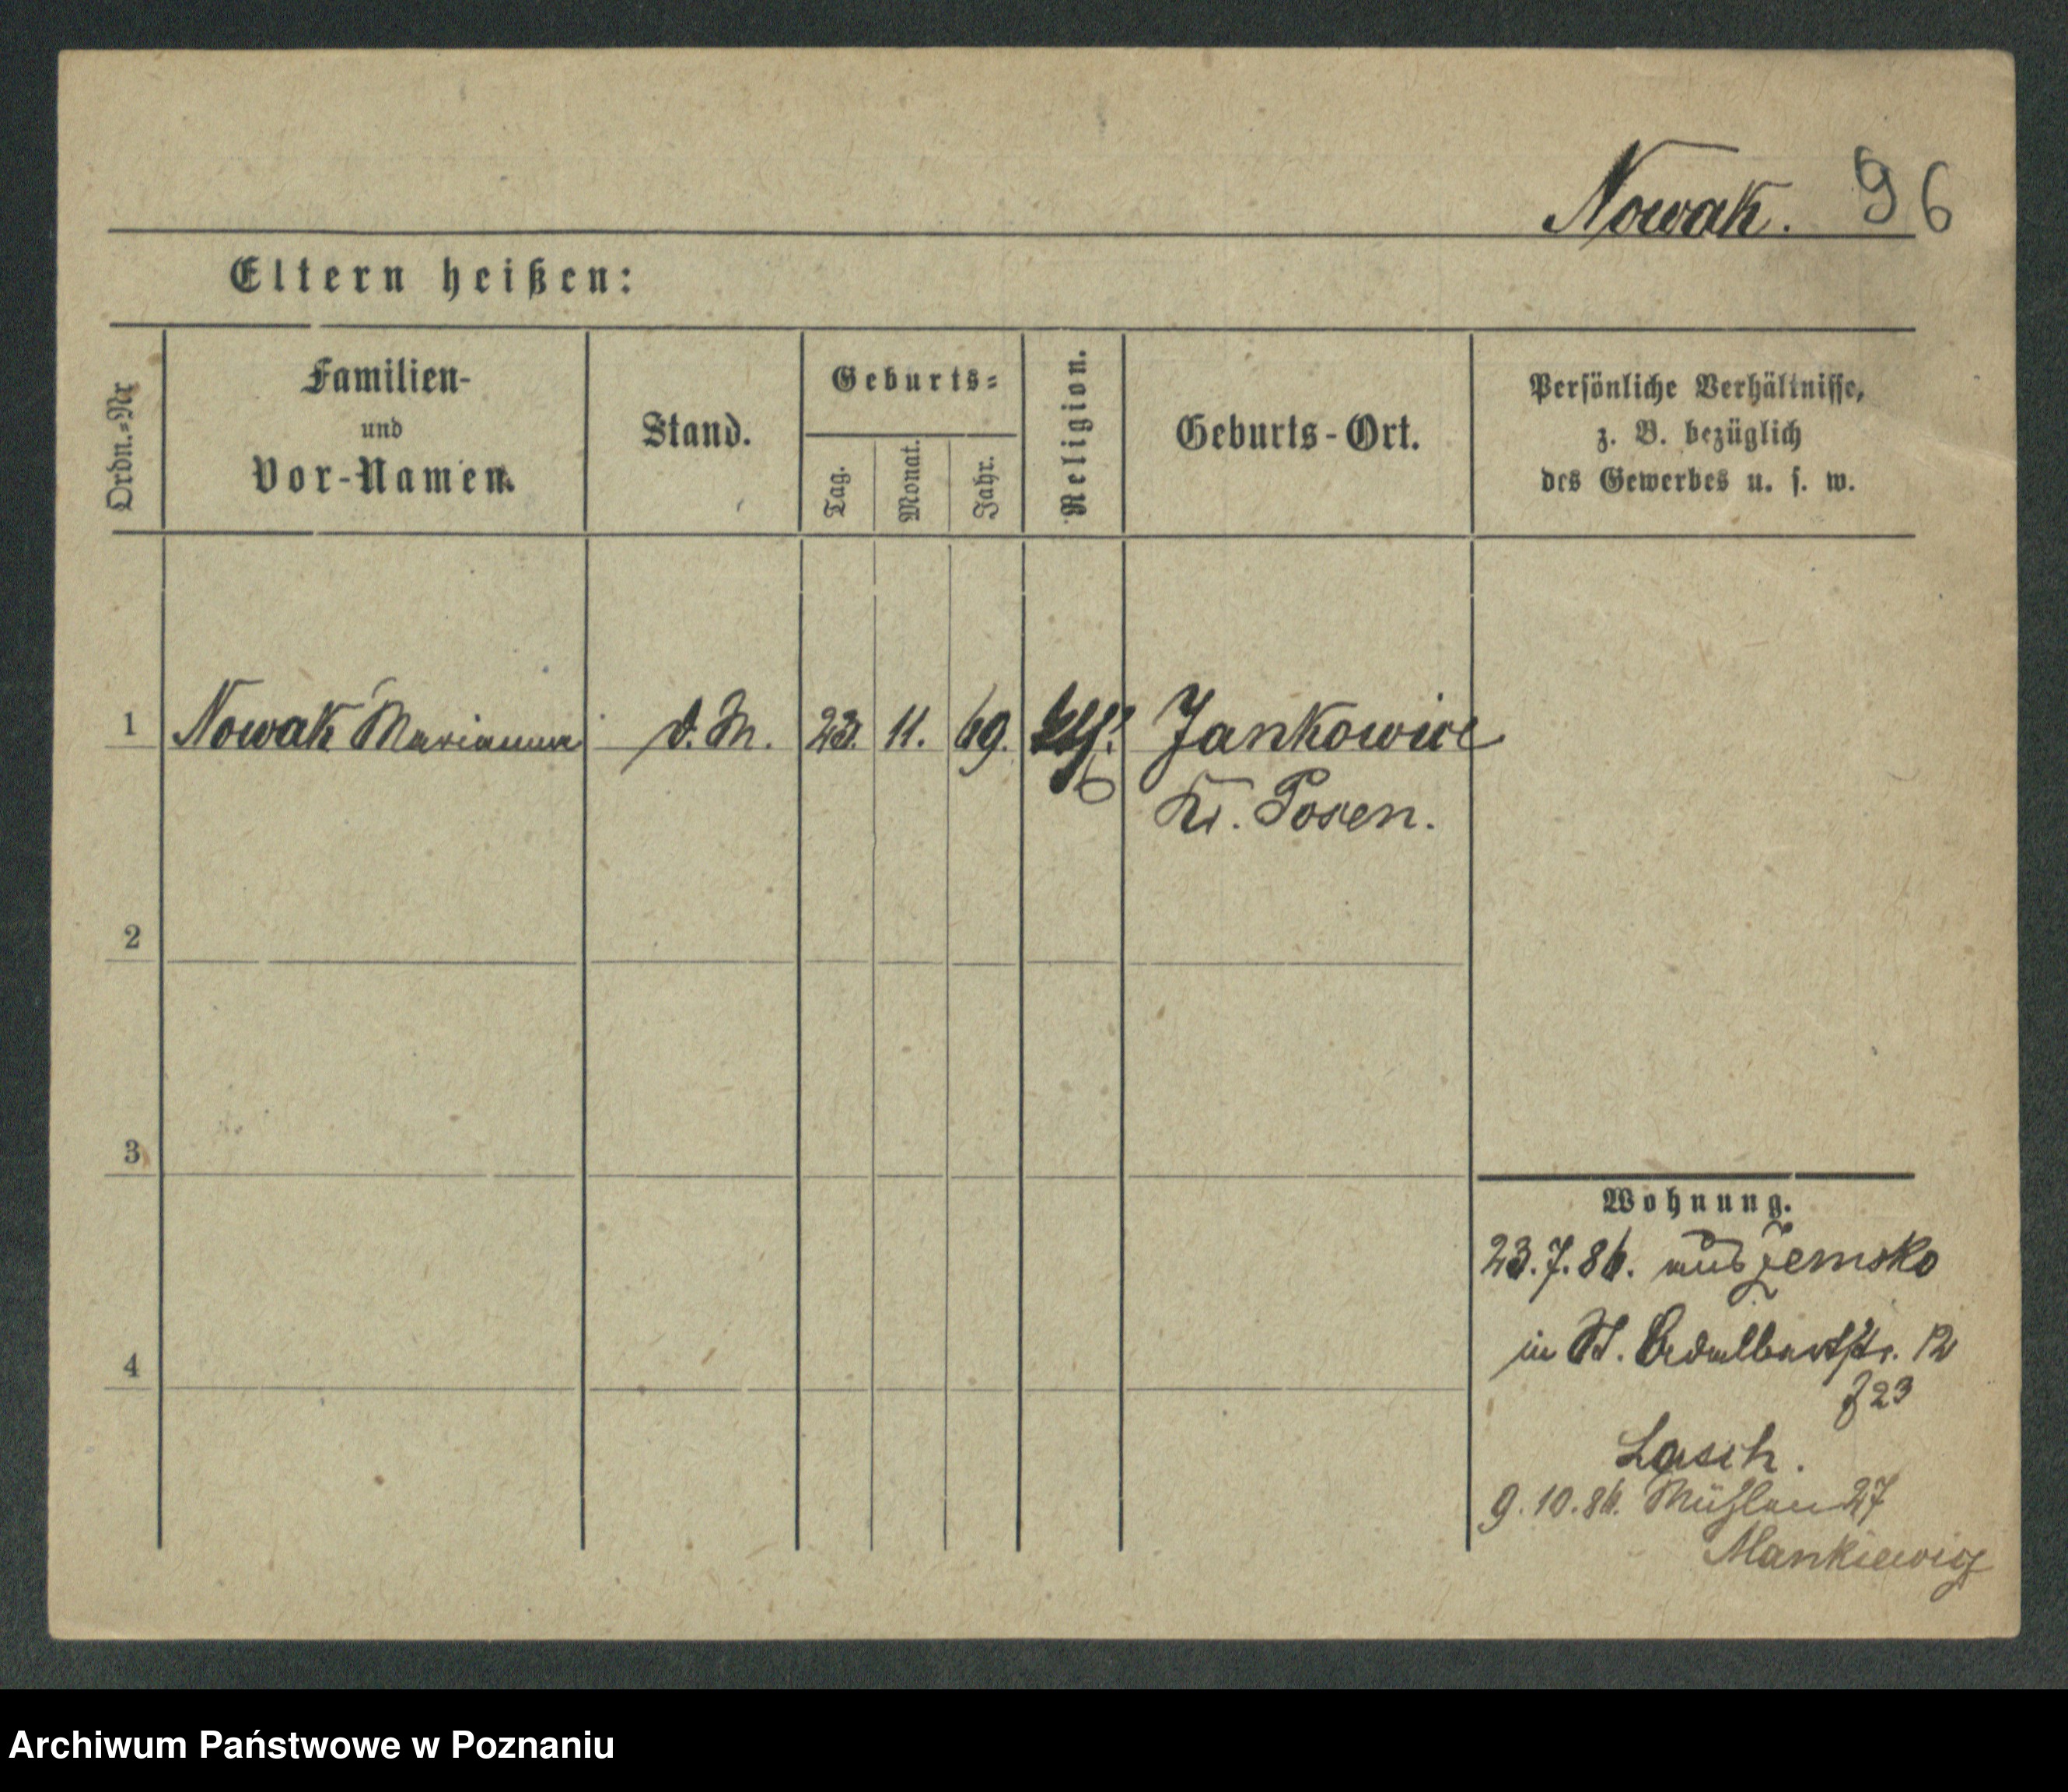 Nowak. 96
Eltern heißen:
Ordn.-Nr
Familien-
und
Vor-Namen.
Stand.
Geburts-
Tag.
Monat.
Jahr.
Religion.
Geburts-Ort.
Persönliche Verhältnisse,
z. B. bezüglich
des Gewerbes u. s. w.
1 Nowak Marianna d. M. 23. 11. 69. Jankowice
Kr. Posen.
2
3
4
Wohnung.
23.7.86. aus Zemsko
in St. Adalbertstr. 12
Z 23
Lasch.
9.10.86. Mühlen 27
Mankiewicz
Archiwum Państwowe w Poznaniu